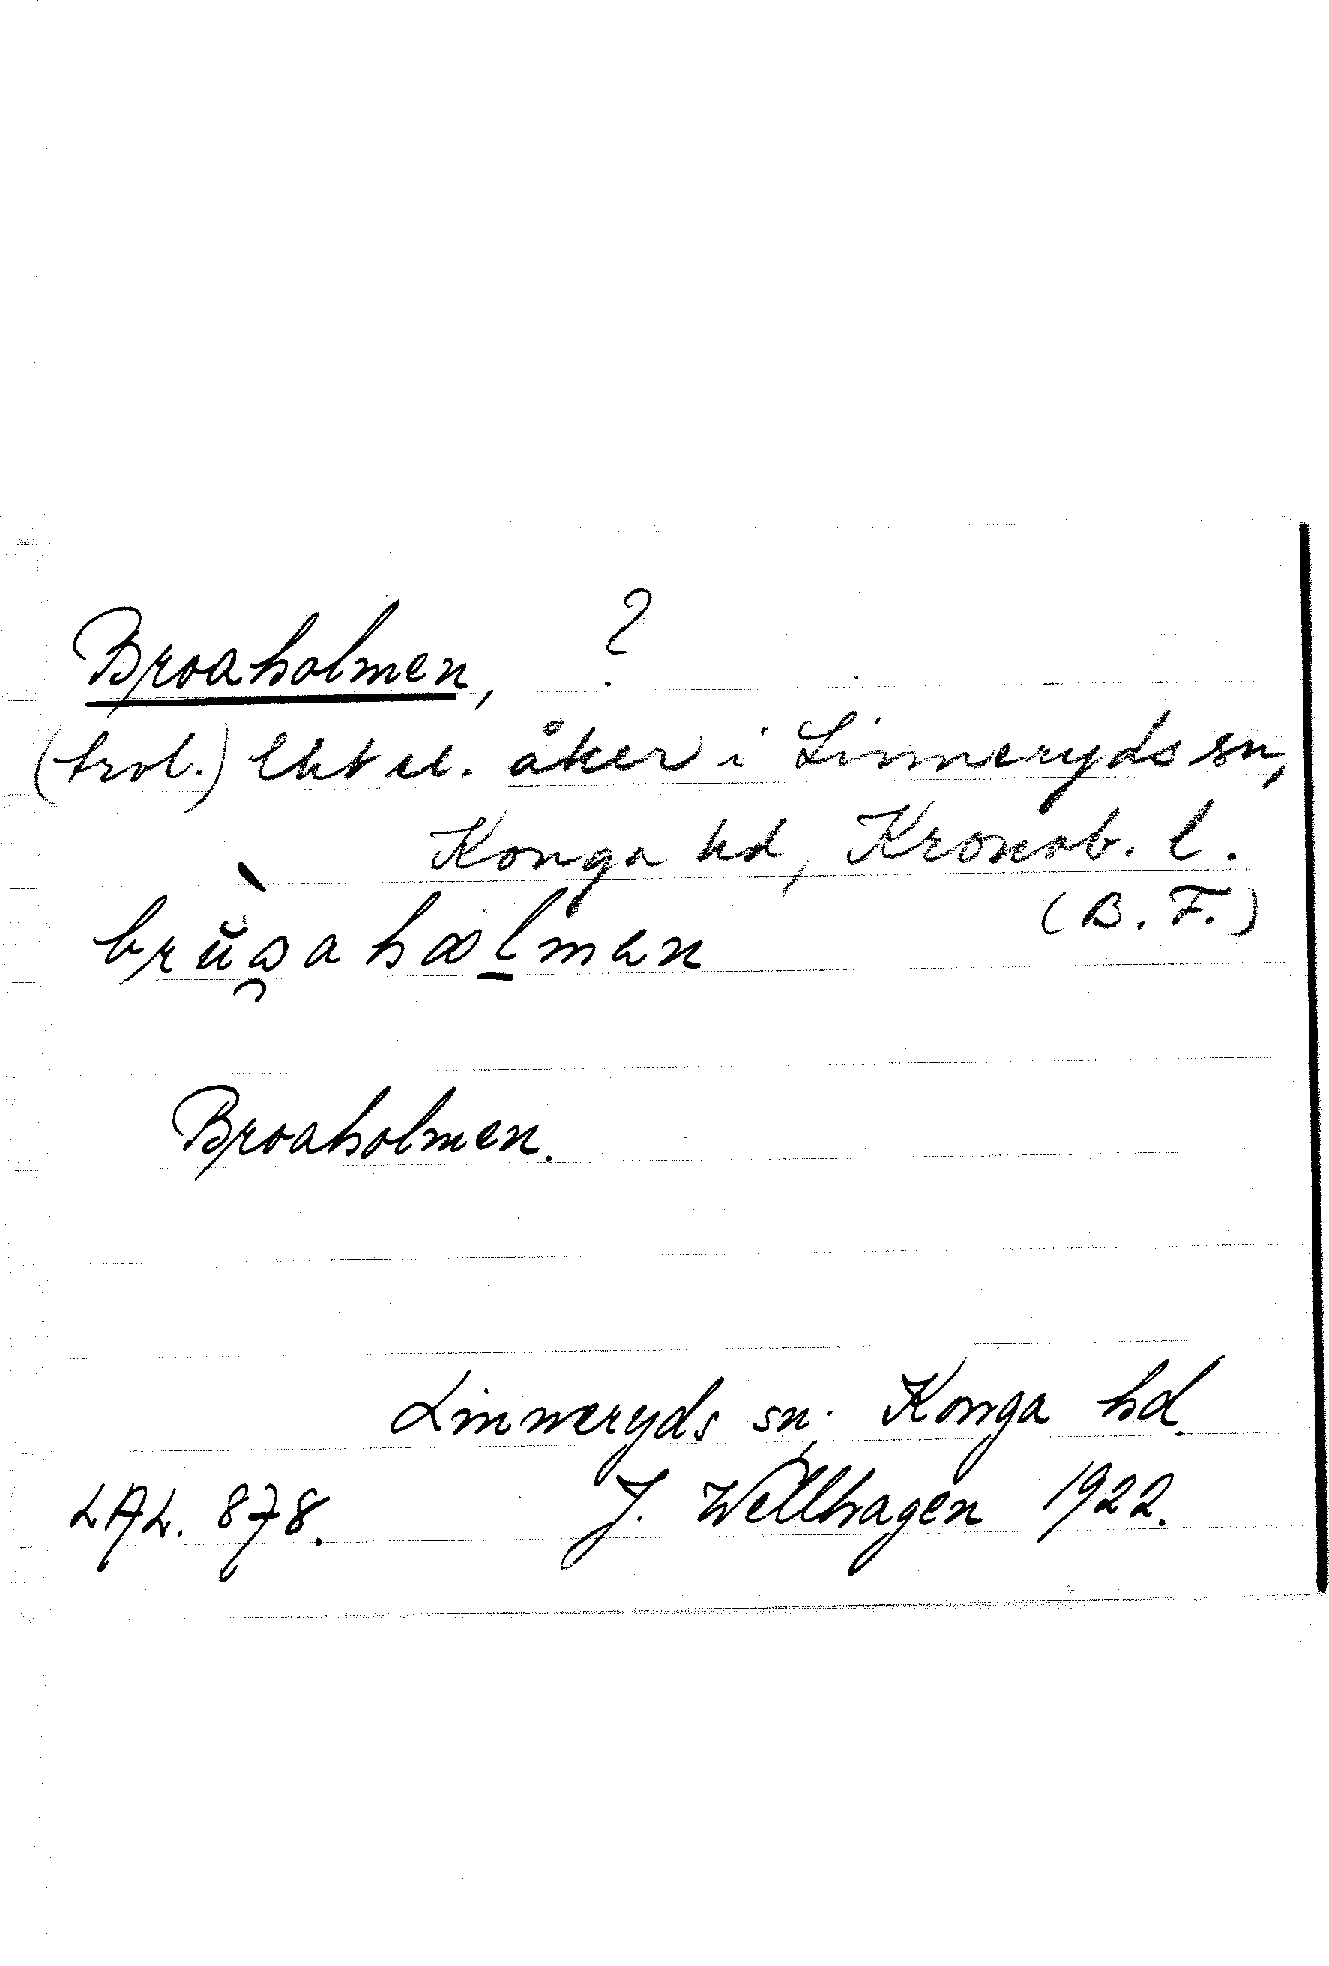 Broaholmen, ?
(trol.) lht el. åker i Linneryds sn,
Konga hd, Kronob. l.
(B. F.)
Broaholmen.
Linneryds sn. Konga hd.
LAL. 878. J. Wellhagen 1922.